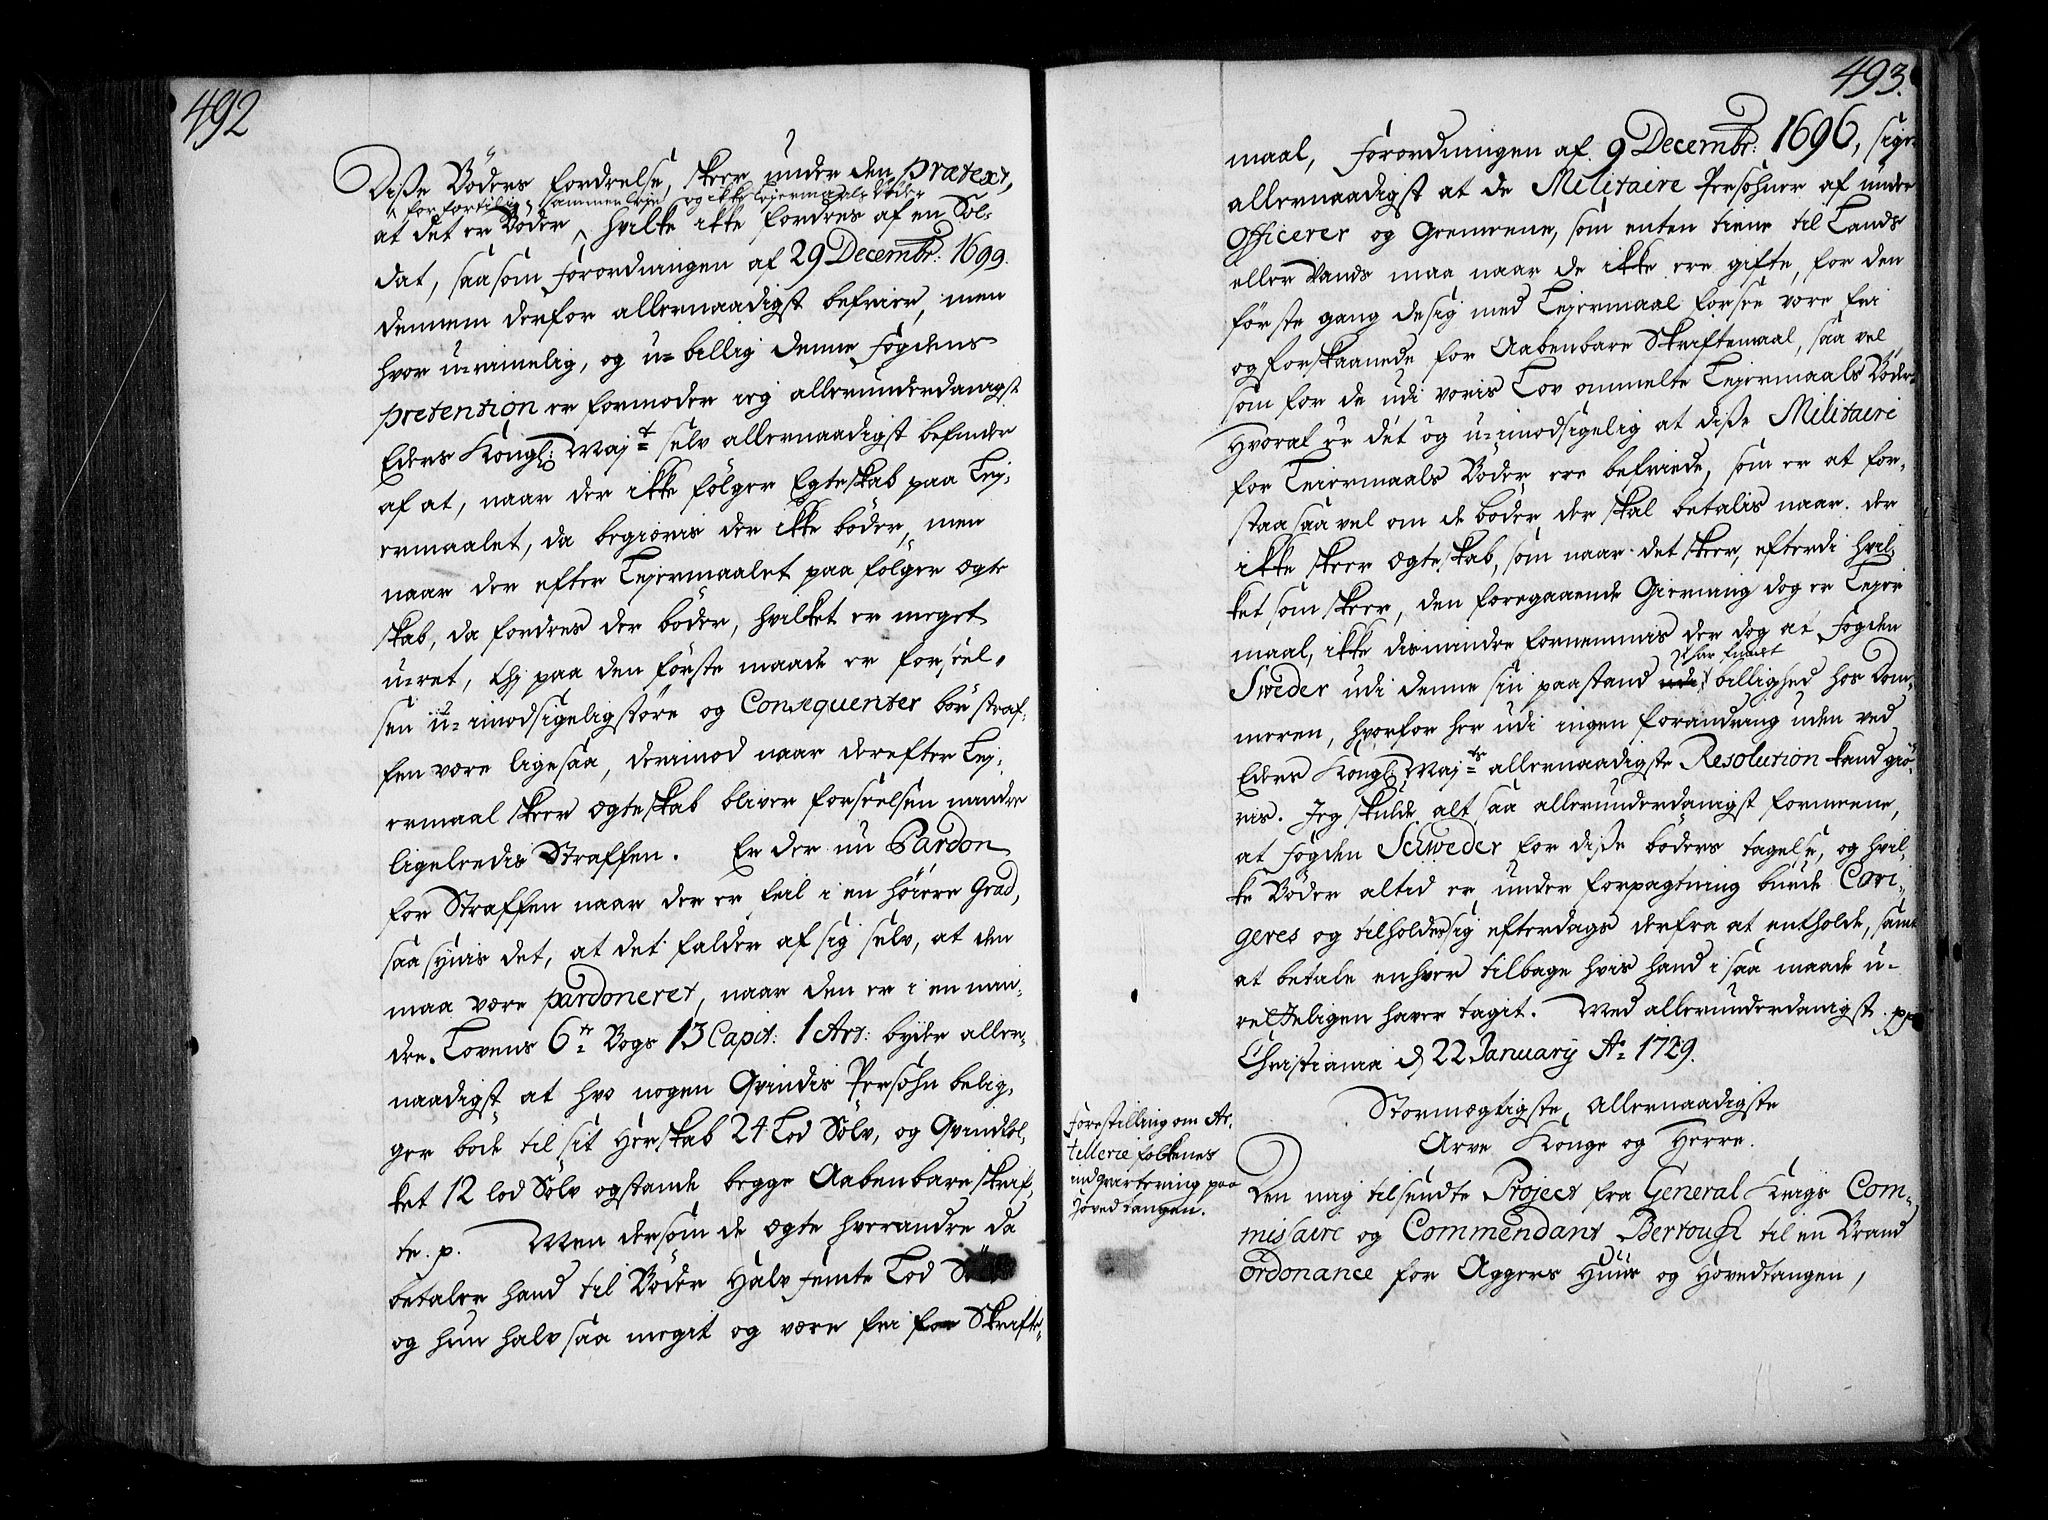 492
Disse Böders fordrelse, skeer under den prætext,
^ for fortilig sammenleje og ikke Leiermaals Böder
at det er Böder ^ hvilke ikke fordres af en Sol-
dat, saasom Forordningen af 29 Decembr: 1699.
dennem derfor allernaadigst befrier, men
hvor u-rimelig, og u-billig denne Fogdens
pretention er formoder ieg allerunderdanigst
Eders Kongl: Maj:t selv allernaadigst befinder
af at, naar der ikke fölger Egteskab paa Lej-
ermaalet, da begiæris der ikke böder, men
naar der efter Lejermaalet paa fölger ægte
skab, da fordres der böder, hvilket er meget
u-ret, thj paa den förste maade er forseel-
sen u-imodsigelig större og Consequenter bör straf-
fen være ligesaa, derimod naar derefter Lej-
ermaal skeer ægteskab bliver forseelsen mindre
ligeledis Straffen. Er der nu Pardon
for Straffen naar der er feil i en höiere Grad,
saa synis det, at det falder af sig selv, at den
maa være pardoneret, naar den er i en min-
dre. Lovens 6te Bogs 13 Capit: 1 Art: byder aller-
naadigst at hvo nogen Qvindis Persohn belig-
ger böde til sit Herskab 24 Lod Sölv, og Qvindfol-
ket 12 lod Sölv og stande begge Aabenbare skrif-
te. p. Men dersom de ægte hverandre da
betaler hand til Böder Halv femte Lod
og hun halv saa megit og være fri for Skrifte-
493.
maal, Forordningen af 9 Decembr: 1696, siger
allernaadigst at de Militaire Persohner af under
Officerer og Gemeene, som enten tiene til Lands
eller Vands maa naar de ikke ere gifte, for den
förste gang de sig med Lejermaal forsee være fri
og forskaanede for Aabenbare Skriftemaal, saa vel
som for de udi voris Lov ommelte Lejermaals Böder
Hvoraf er det og u-imodsigelig at disse Militaire
for Leiermaals Böder ere befriede, som er at for-
staa saa vel om de böder der skal betalis naar der
ikke skeer ægteskab, som naar det skeer, efterdi hvil-
ket som skeer, den foregaaende Gierning dog er Lejer
maal, ikke dismindre fornemmis der dog at Fogden
har fundet
Sweder udi denne sin paastand udi billighed hos Dom-
meren, hvorfor her udi ingen forandring uden ved
Eders Kongl: Maj:ts allernaadigste Resolution kand giö-
ris. Jeg skulde alt saa allerunderdanigst formeene,
at Fogden Schweder for disse böders tagelse, og hvil-
ke Böder altid er under forpagtning burde Cori-
geres og tilholdes sig efterdags derfra at entholde, samt
at betale enhver tilbage hvis hand i saa maade u-
retteligen haver tagit. Med allerunderdanigst. pp
Christiania d 22 January Ao 1729.
Stormægtigste, Allernaadigste
Arve Konge og Herre.
Forestilling om Ar-
tellerie folkenes
indqvartering paa
Hovedtangen.
Den mig tilsendte Project fra General Krigs Com-
missaire og Commendant Bertouch til en Brand
ordonance for Aggers Huus og Hovedtangen,